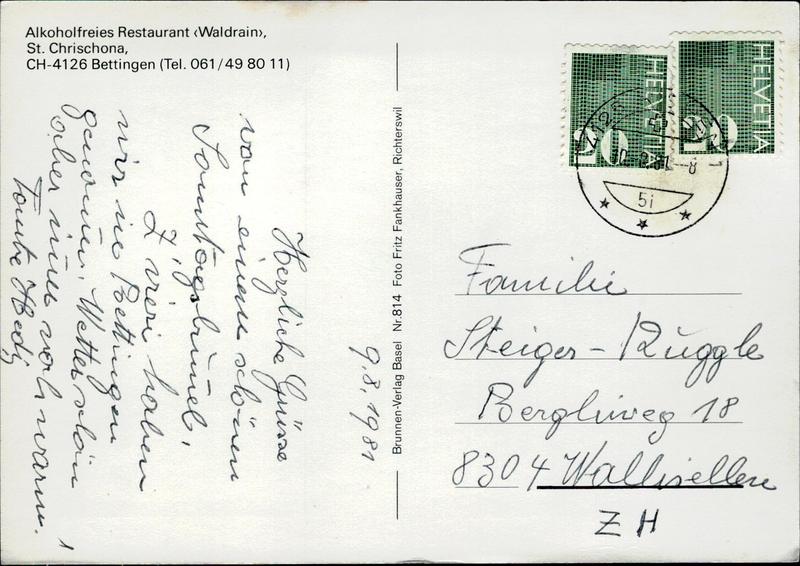 Alkoholfreies Restaurant ‹Waldrain›,
St. Chrischona,
CH-4126 Bettingen (Tel. 061/49 80 11)
9.8.1981
Herzliche Grüsse
von einem schönen
Sonntagsbummel,
Z'vieri haben
wir in Bettingen
genomen. Wetter schön
aber immer noch warm!
Tante Hedy
Brunnen-Verlag Basel Nr.814 Foto Fritz Fankhauser, Richterswil
HELVETIA
HELVETIA
4125
5i
Familie
Steiger-Ruggle
Bergliweg 18
8304 Wallisellen
ZH